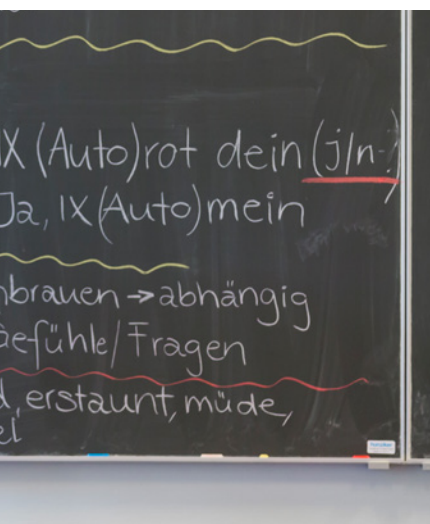 IX (Auto)rot dein (j/n-?)
Ja, IX (Auto)mein
nbrauen → abhängig
Gefühle/Fragen
d, erstaunt, müde,
el